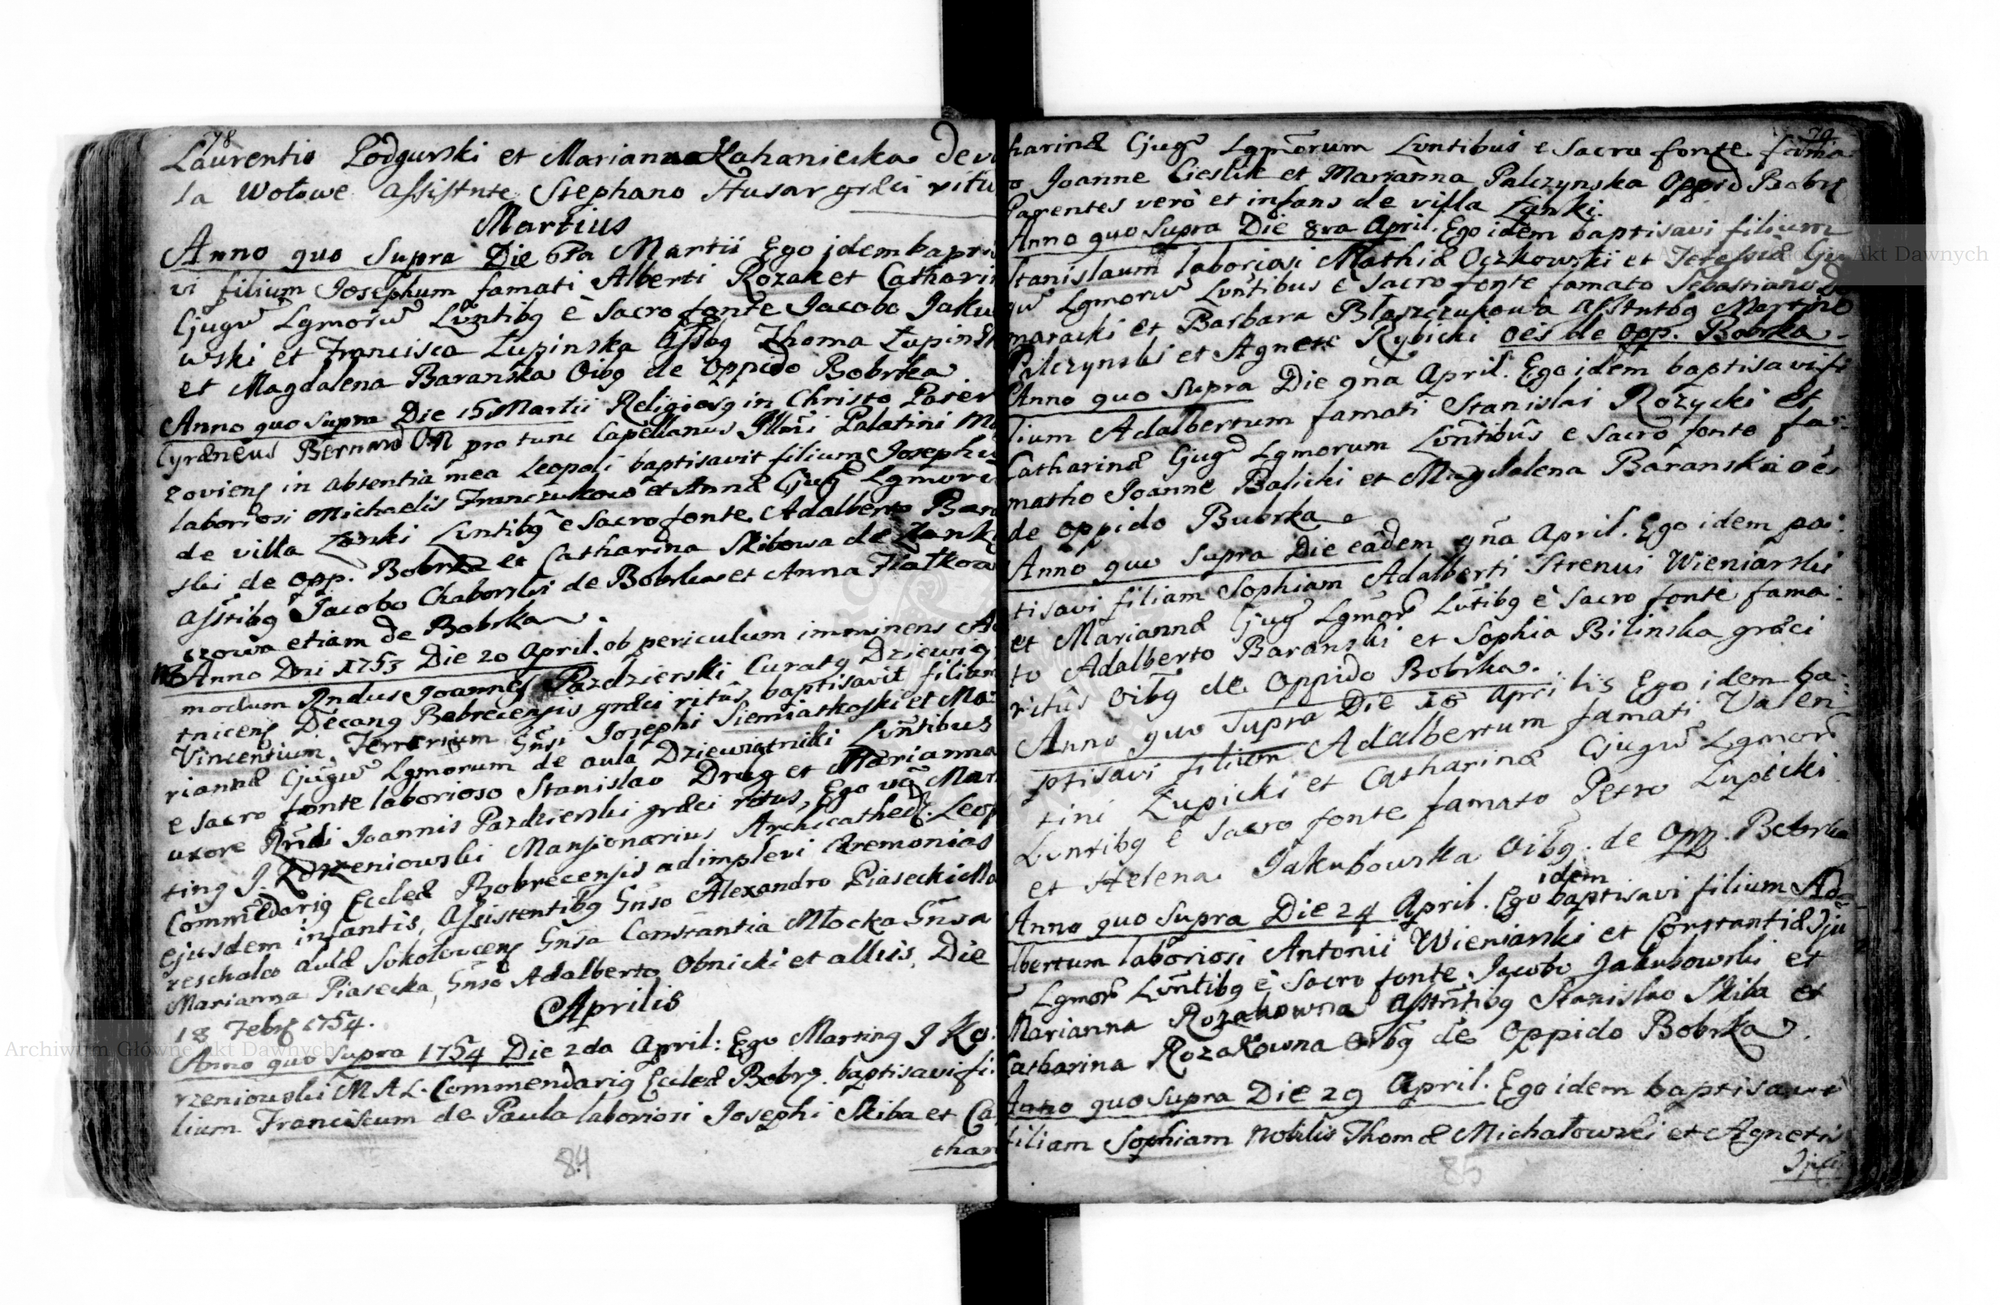 78
Laurentio Podgurski et Marianna Kahanieska de vi
la Wołowe assistnte Stephano Husar græci ritu
Martius
Anno quo Supra Die 6ta Martii Ego jdem baptis
vi filium Josephum famati Alberti Rozak et Catharin
Cjugu Lgmoru Lvntibq è Sacro fonte Jacobo Jaku
wski et Francisca Łupinska Assbq Thoma Łupinsk
et Magdalena Baranska Oibq de Oppido Bobrka
Anno quo supra Die 15 Martii Religiosq in Christo Pater
Cyræneus Bernard pro tunc Capellanus Illmi Palatini
zoviens in absentia mea Leopoli baptisavit filium Joseph
laboriosi Michaelis Franczukow et Annæ Cjug Lgmoru
de villa Łanki Lvntibq è Sacro fonte Adalberto Bara
ski de opp. Bobrka et Catharina Skibowa de Łanki
Asstibq Jacobo Chaborski de Bobrka et Anna Fiałkow
czowa etiam de Bobrka
Anno Dni 1753 Die 20 April. ob periculum imminens
modum Rndus Joannes Pazdzierski Curatq Dziewię
tnicens Decanq Bobrecensis græci ritus, baptisavit filium
Vincentium Gnsi Josephi Sieniatkoski et Ma
riannæ Cjugu Lgmorum de aula Dziewiątniki Lvntibus
e Sacro fonte laborioso Stanislao Drag et Marianna
uxore Rndi Joannis Pazdzierski græci ritus, Ego vo Mar
tinq J. Korzeniowski Mansionarius Archicathed. Leop
Commedariq Eccleæ Bobrecensis adimplevi Cæremonias
ejusdem infantis, Assistentibq Gnso Alexandro Piasecki Ma
reschalco aulæ Sokołowcens Gnsa Constantia Młocka Gnsa
Marianna Piasecka, Gnso Adalberto Obnicki et alliis, Die
18 Febr 1754.
Aprilis
Anno quo Supra 1754 Die 2da April: Ego Martinq J Ko:
rzeniowski M A L. Commendariq Eccleæ Bobrz. baptisavi fi:
lium Franciscum de Paula laboriosi Josephi Skiba et Ca
than
84
79
harinæ Cjugu Lgmorum Lvntibus e Sacro fonte fama
o Joanne Cieslik et Marianna Palczynska Oppid Bobrz
Parentes verò et infans de villa Łanki.
Anno quo Supra Die 8va April. Ego idem baptisavi filium
Stanislaum laboriosi Mathiæ Oczkowski et Cju
gu Lgmoru Lvntibus è Sacro fonte famato Sebastiano
maracki et Barbara Błaszczukowa Asstntbq Martino
Palczynski et Agnete Rybicki oes de opp. Bobrka.
Anno quo supra Die 9na April. Ego idem baptisavi fi
lium Adalbertum famati Stanislai Rożycki et
Catharinæ Cjugu Lgmorum Lvntibus e Sacro fonte fa:
matho Joanne Balicki et Magdalena Baranska oes
de oppido Bubrka
Anno quo supra Die eadem 9na April. Ego idem pa:
tisavi filiam Sophiam Adalberti Strenui Wieniarski
et Mariannæ Cjug Lgmoru Lvtibq è Sacro fonte fama:
to Adalberto Baranski et Sophia Bilinska græci
ritus Oibq de Oppido Bobrka.
Anno quo supra Die 16 Aprilis Ego idem ba:
ptisavi filium Adalbertum famati Valen
tini Łupicki et Catharinæ Cjugu Lgmoru
Lvntibq è Sacro fonte famato Petro Łupicki
et Helena Jakubowska Oibq. de Opp. Bobrka
Anno quo Supra Die 24 April. Ego idem baptisavi filium Ad:
lbertum laboriosi Antonii Wieniarski et Constantiæ Cju
Lgmoru Lvntibq è Sacro fonte Jacobo Jakubowski et
Marianna Rozakowna Asstntibq Stanislao Skiba et
Catharina Rozakowna Oibq de Oppido Bobrka.
Anno quo Supra Die 29 April. Ego idem baptisavi
filiam Sophiam Nobilis Thomæ Michałowski et Agnetis
85
Archiwum Główne Akt Dawnych
Archiwum Główne Akt Dawnych